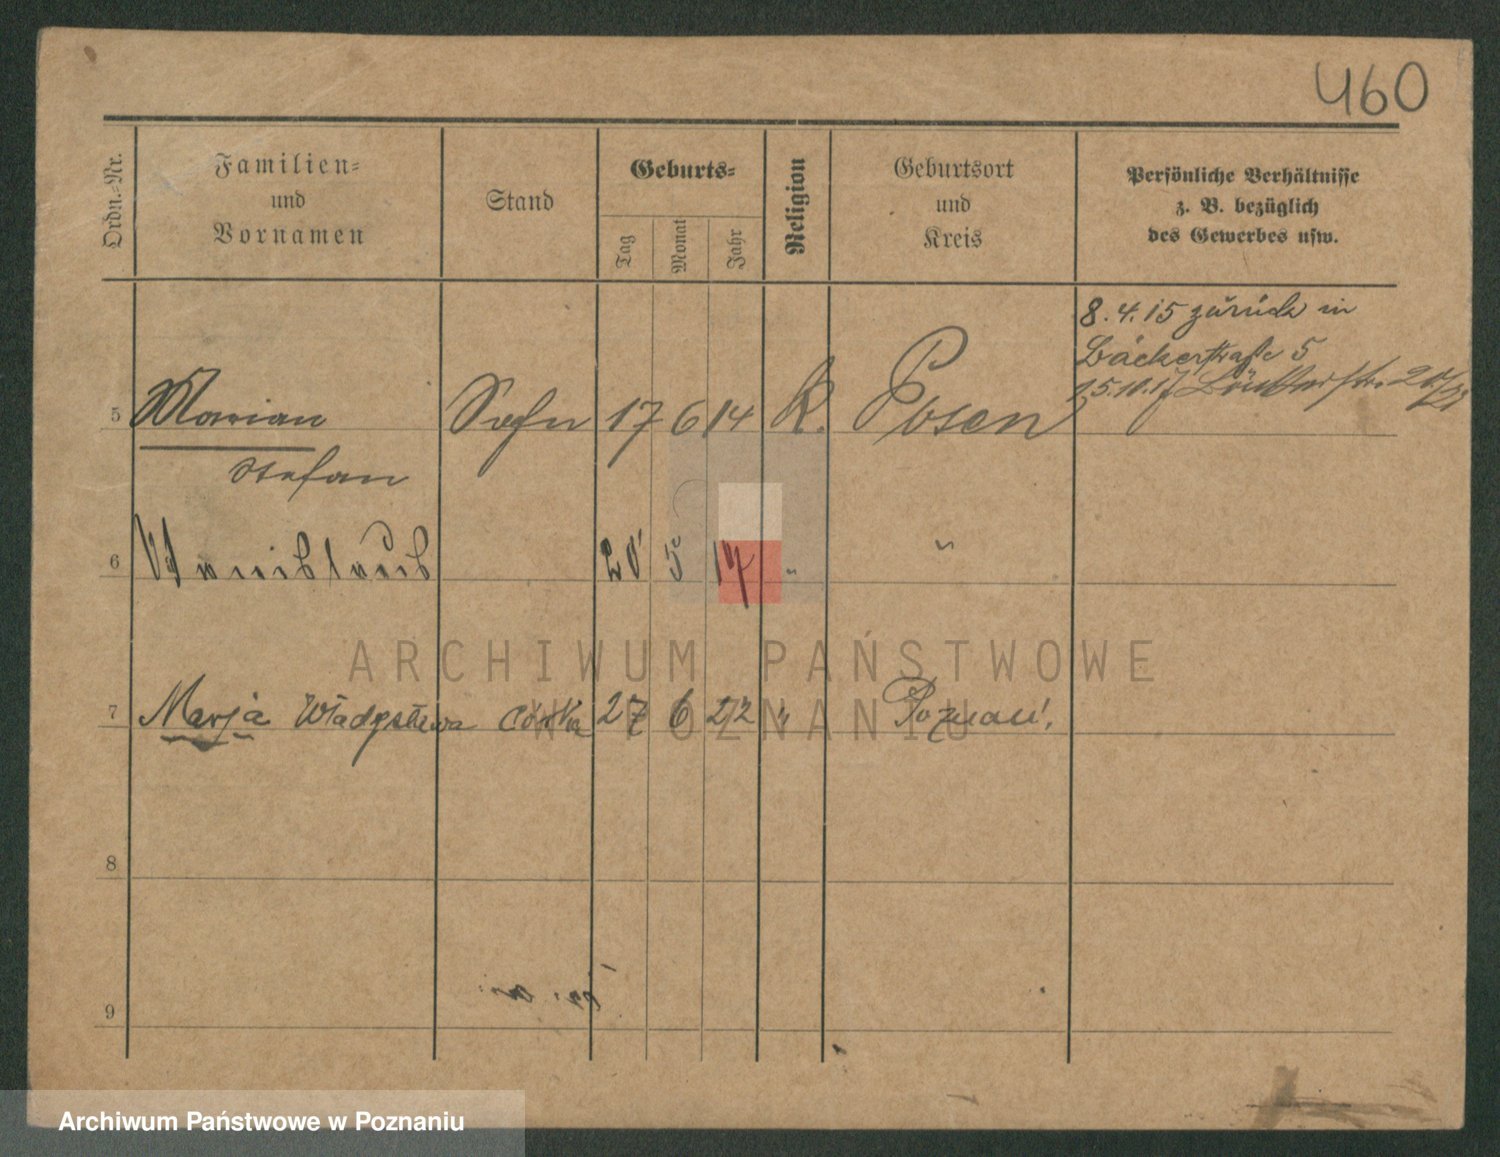 460
Ordn.-Nr.
Familien-
und
Vornamen
Stand
Geburts-
Tag
Monat
Jahr
Religion
Geburtsort
und
Kreis
Persönliche Verhältnisse
z. B. bezüglich
des Gewerbes usw.
8.4.15 zurück in
Bäckerstraße 5
15.10.17
5 Marian Sohn 17 6 14 K. Posen
Stefan
6 20 5 17 " "
7 Marja Władysława Córka 27 6 22 " Poznań.
8
9
ARCHIWUM PAŃSTWOWE
W POZNANIU
Archiwum Państwowe w Poznaniu